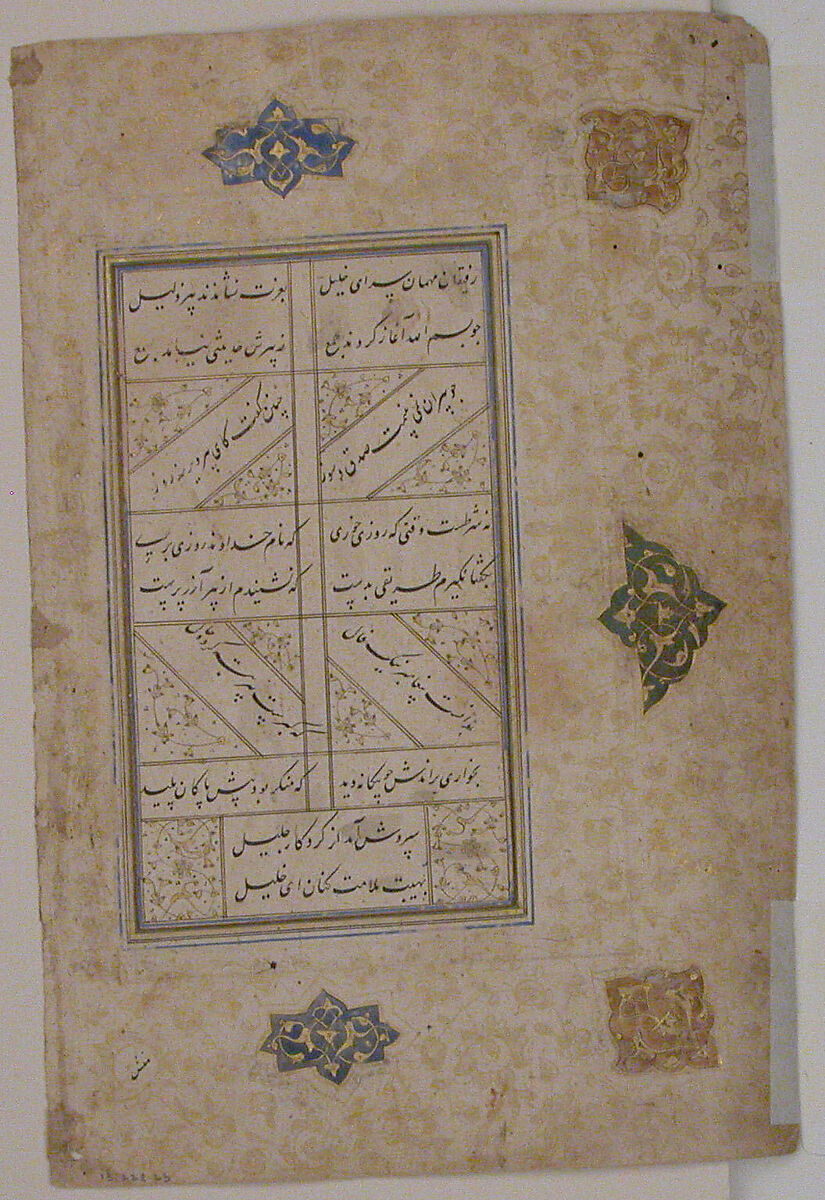 رقیبان مهمان سرای خلیل بعزت نشاندند پیر ذلیل
چو بسم الله آغاز کردند جمع ز پیرش حدیثی نیامد بسمع
چنین گفت کای پیر دیرینه روز
چو پیران نمی بینمت صدق و سوز
نه شرطست وقتی که روزی خوری که نام خداوند روزی بری
بگفتا نگیرم طریقی بدست که نشنیدم از پیر آزر پرست
بدانست پیغامبر نیک فال
که گبرست پیر تبه کرده حال
بخواری براندش چو بیگانه دید که منکر بود پیش پاکان پلید
سروش آمد از کردگار جلیل
بهیبت ملامت کنان ای خلیل
منش
13.228.23